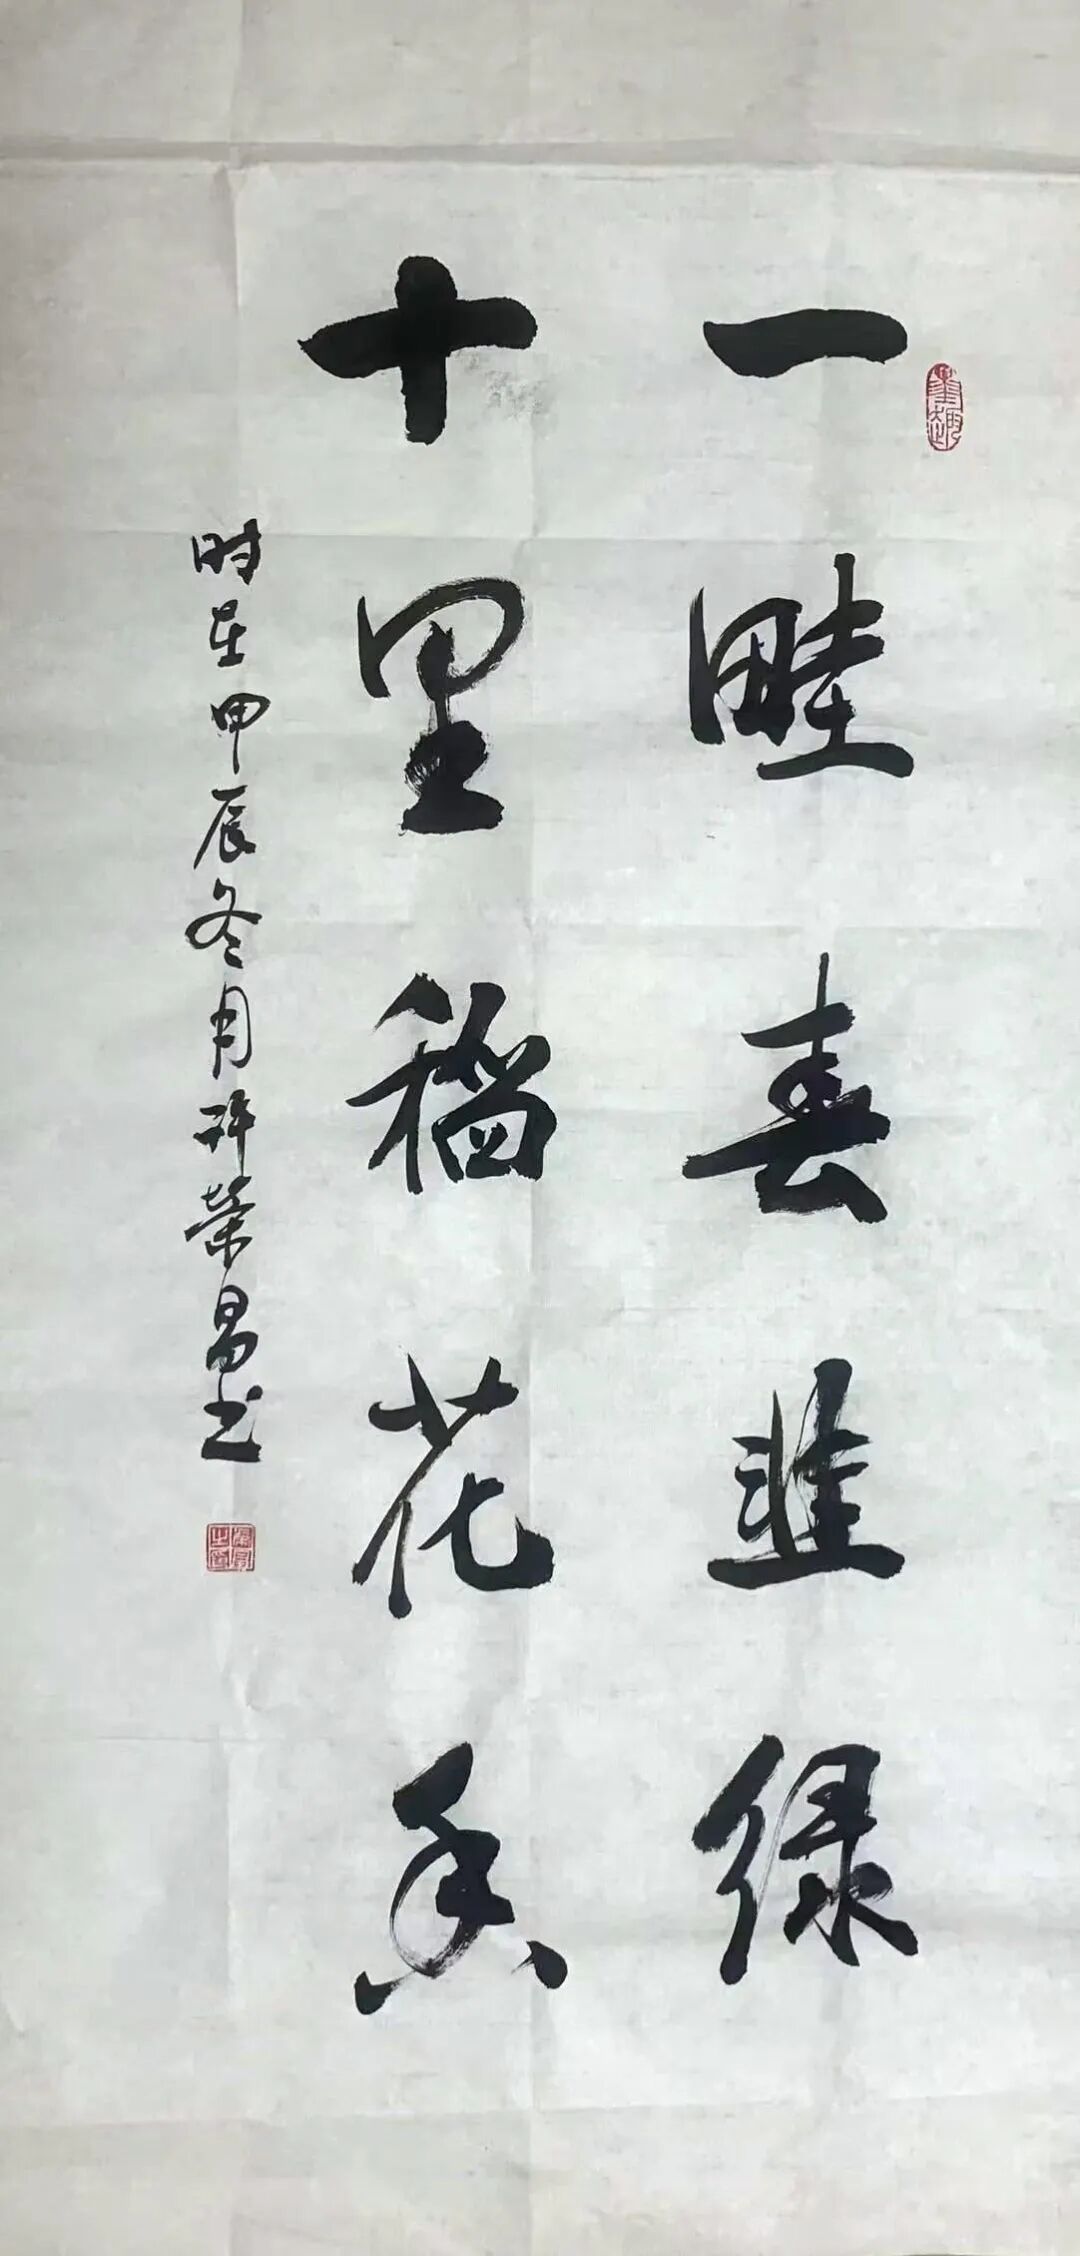 一畦春韭绿
十里稻花香
时在甲辰冬月许荣昌书